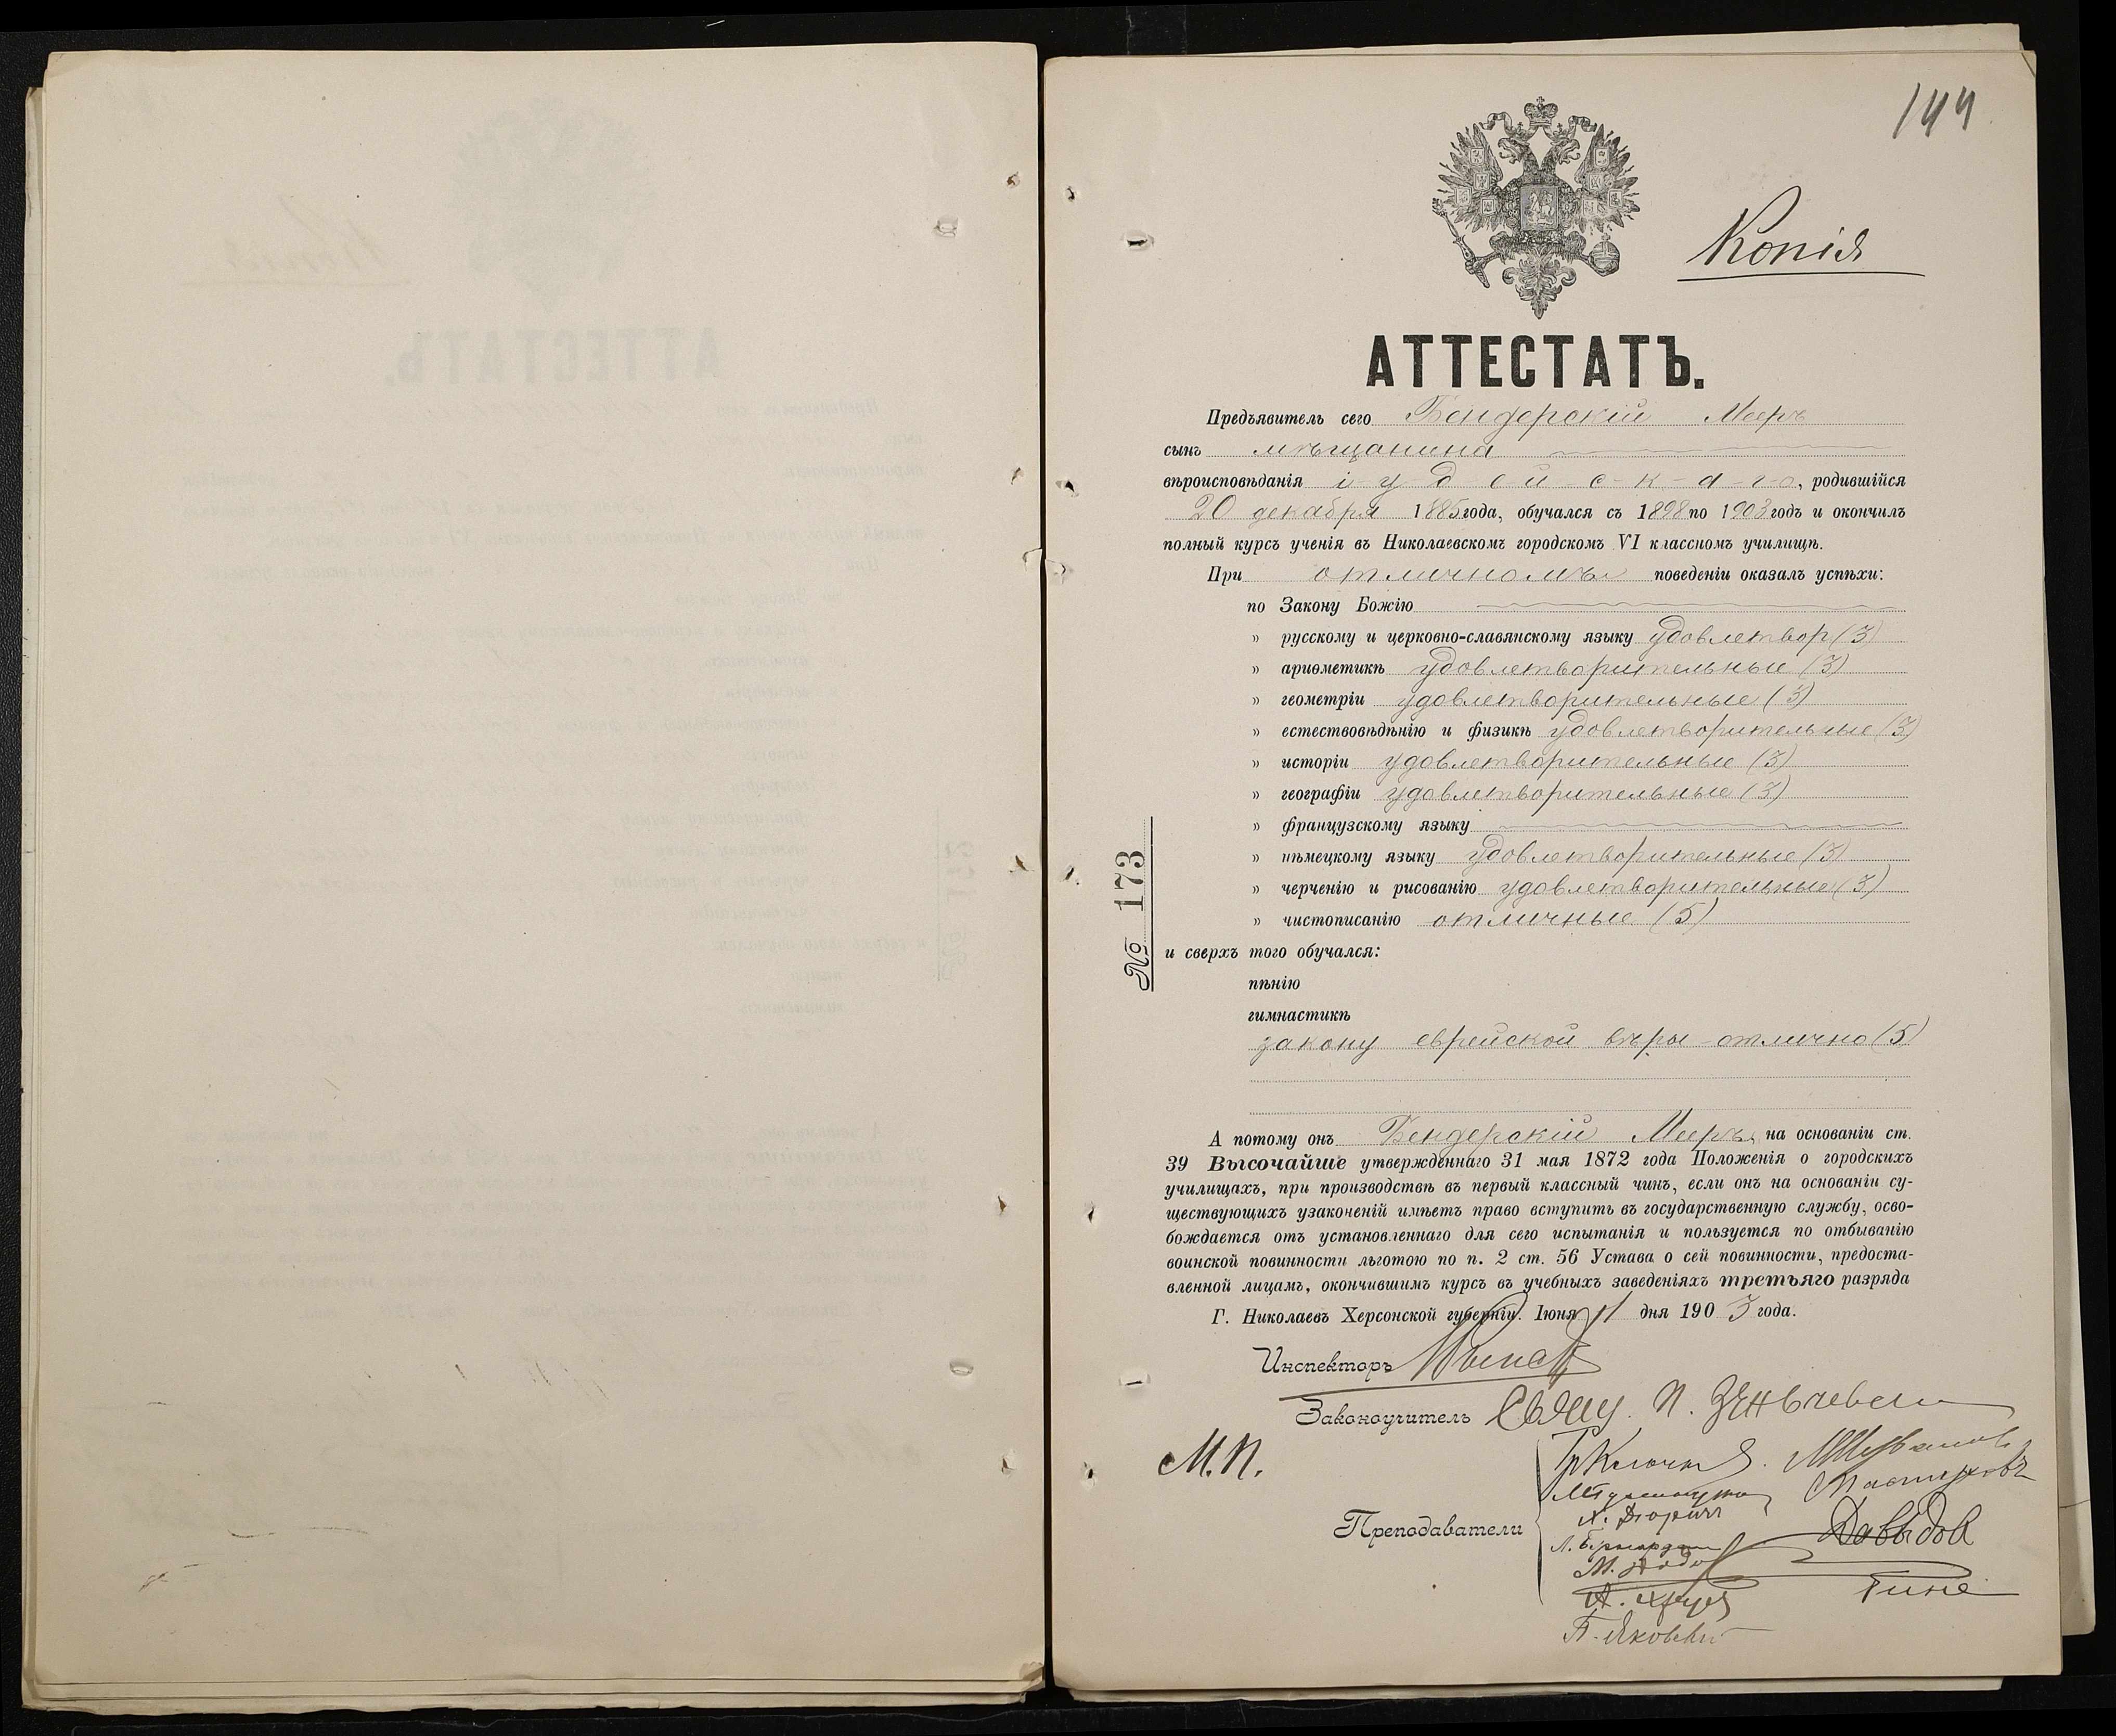 144
Копія
АТТЕСТАТЪ.
Предъявитель сего Бендерскій Мееръ
сынъ мѣщанина
вѣроисповѣданія і-у-д-е-й-с-к-а-г-о, родившійся
20 декабря 1885 года, обучался съ 1898 по 1903 годъ и окончилъ
полный курсъ ученія въ Николаевскомъ городскомъ VI классномъ училищѣ.
При отличномъ поведеніи оказалъ успѣхи:
по Закону Божію
" русскому и церковно-славянскому языку удовлетвор (3)
" ариѳметикѣ удовлетворительные (3)
" геометріи удовлетворительные (3)
" естествовѣдѣнію и физикѣ удовлетворительные (3)
" исторіи удовлетворительные (3)
" географіи удовлетворительные (3)
" французскому языку
" нѣмецкому языку удовлетворительные (3)
" черченію и рисованію удовлетворительные (3)
" чистописанію отличные (5)
№ 173
и сверхъ того обучался:
пѣнію
гимнастикѣ
закону еврейской вѣры - отлично (5)
А потому онъ Бендерскій Мееръ, на основаніи ст.
39 Высочайше утвержденнаго 31 мая 1872 года Положенія о городскихъ
училищахъ, при производствѣ въ первый классный чинъ, если онъ на основаніи су-
ществующихъ узаконеній имѣетъ право вступить въ государственную службу, осво-
бождается отъ установленнаго для сего испытанія и пользуется по отбыванію
воинской повинности льготою по п. 2 ст. 56 Устава о сей повинности, предоста-
вленной лицамъ, окончившимъ курсъ въ учебныхъ заведеніяхъ третьяго разряда
Г. Николаевъ Херсонской губерніи. Іюня 11 дня 1903 года.
Инспекторъ
Законоучитель Свящ. П.
М.П.
Преподаватели
Давыдов
П. Яковкин